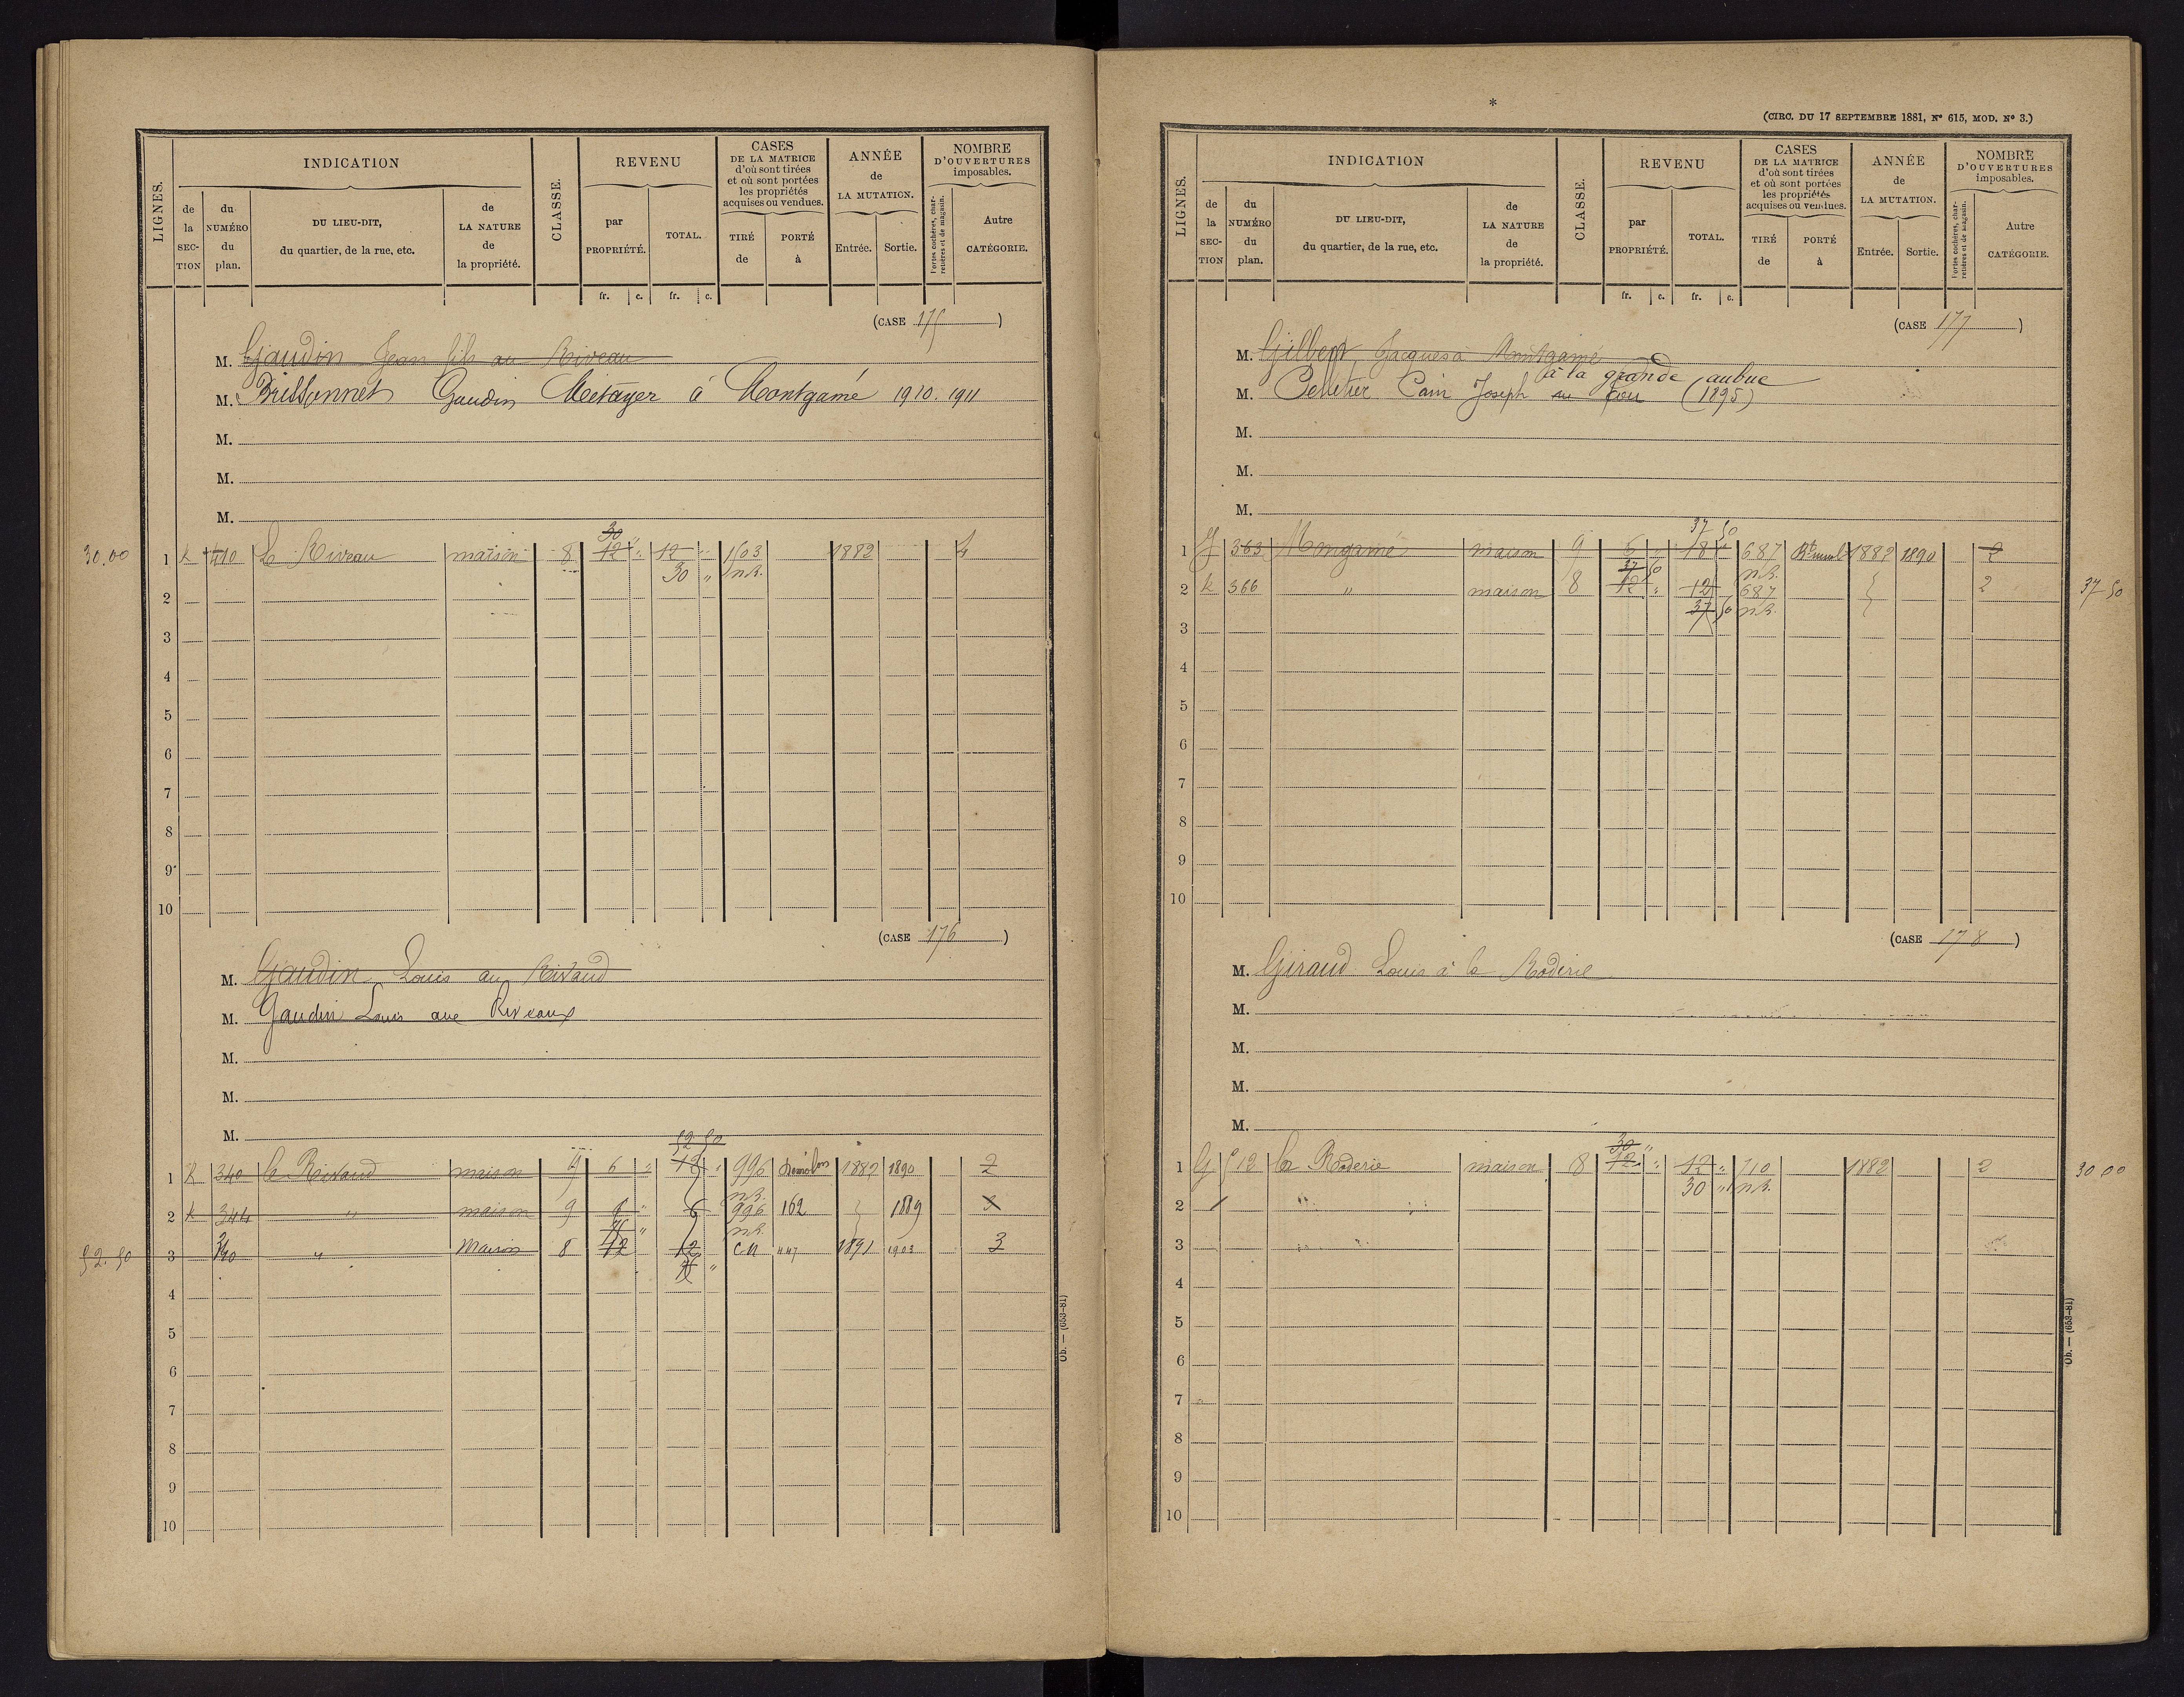 LIGNES.
INDICATION
CLASSE.
REVENU
CASES
DE LA MATRICE
d'où sont tirées
et où sont portées
les propriétés
acquises ou vendues.
ANNÉE
de
LA MUTATION.
NOMBRE
D'OUVERTURES
imposables.
de
la
SEC-
TION
du
NUMÉRO
du
plan.
DU LIEU-DIT,
du quartier, de la rue, etc.
de
LA NATURE
de
la propriété.
par
PROPRIÉTÉ.
TOTAL.
TIRÉ
de
PORTÉ
à
Entrée.
Sortie.
Portes cochères, char-
retières et de magasin.
Autre
CATÉGORIE.
fr. c. fr. c.
(CASE 175)
M. Gaudin Jean fils au Riveau
M. Brissonnet Gaudin Métayer à Montgamé 1910. 1911
M.
M.
M.
30
30.00 1 K 410 Le Riveau maison 8 12 " 12 " 1603 1882 4
30 " n.R.
2
3
4
5
6
7
8
9
10
(CASE 176)
M. Gaudin Louis au Rivaud
M. Gaudin Louis aux Riveaux
M.
M.
M.
52 50
1 K 340 le Rivaud maison 9 6 " 996 Démolon 1882 1890 2
n.R.
2 K 344 " maison 9 6 " 6 996 162 1889
n.R.
52.50 3 340 " Maison 8 12 12 CN 447 1891 1903 3
4
5
6
7
8
9
10
Ob. — (653-81)
*
(CIRC. DU 17 SEPTEMBRE 1881, N° 615, MOD. N° 3.)
LIGNES.
INDICATION
CLASSE.
REVENU
CASES
DE LA MATRICE
d'où sont tirées
et où sont portées
les propriétés
acquises ou vendues.
ANNÉE
de
LA MUTATION.
NOMBRE
D'OUVERTURES
imposables.
de
la
SEC-
TION
du
NUMÉRO
du
plan.
DU LIEU-DIT,
du quartier, de la rue, etc.
de
LA NATURE
de
la propriété.
par
PROPRIÉTÉ.
TOTAL.
TIRÉ
de
PORTÉ
à
Entrée.
Sortie.
Portes cochères, char-
retières et de magasin.
Autre
CATÉGORIE.
fr. c. fr. c.
(CASE 177)
M. Gilbert Jacques à Montgamé
à la grande aubue
M. Pelletier Cain Joseph au (1895)
M.
M.
M.
37 50
1 363 Mongamé maison 9 6 " 18 " 687 1882 1890 2
37 50 n.R.
2 K 366 " maison 8 12 " 12 687 2 37 50
37 50 n.R.
3
4
5
6
7
8
9
10
(CASE 178)
M. Giraud Louis à la Roderie
M.
M.
M.
M.
30 "
1 G 512 la Roderie maison 8 12 " 12 " 710 1882 2 30 00
30 " n.R.
2
3
4
5
6
7
8
9
10
Ob. — (653-81)